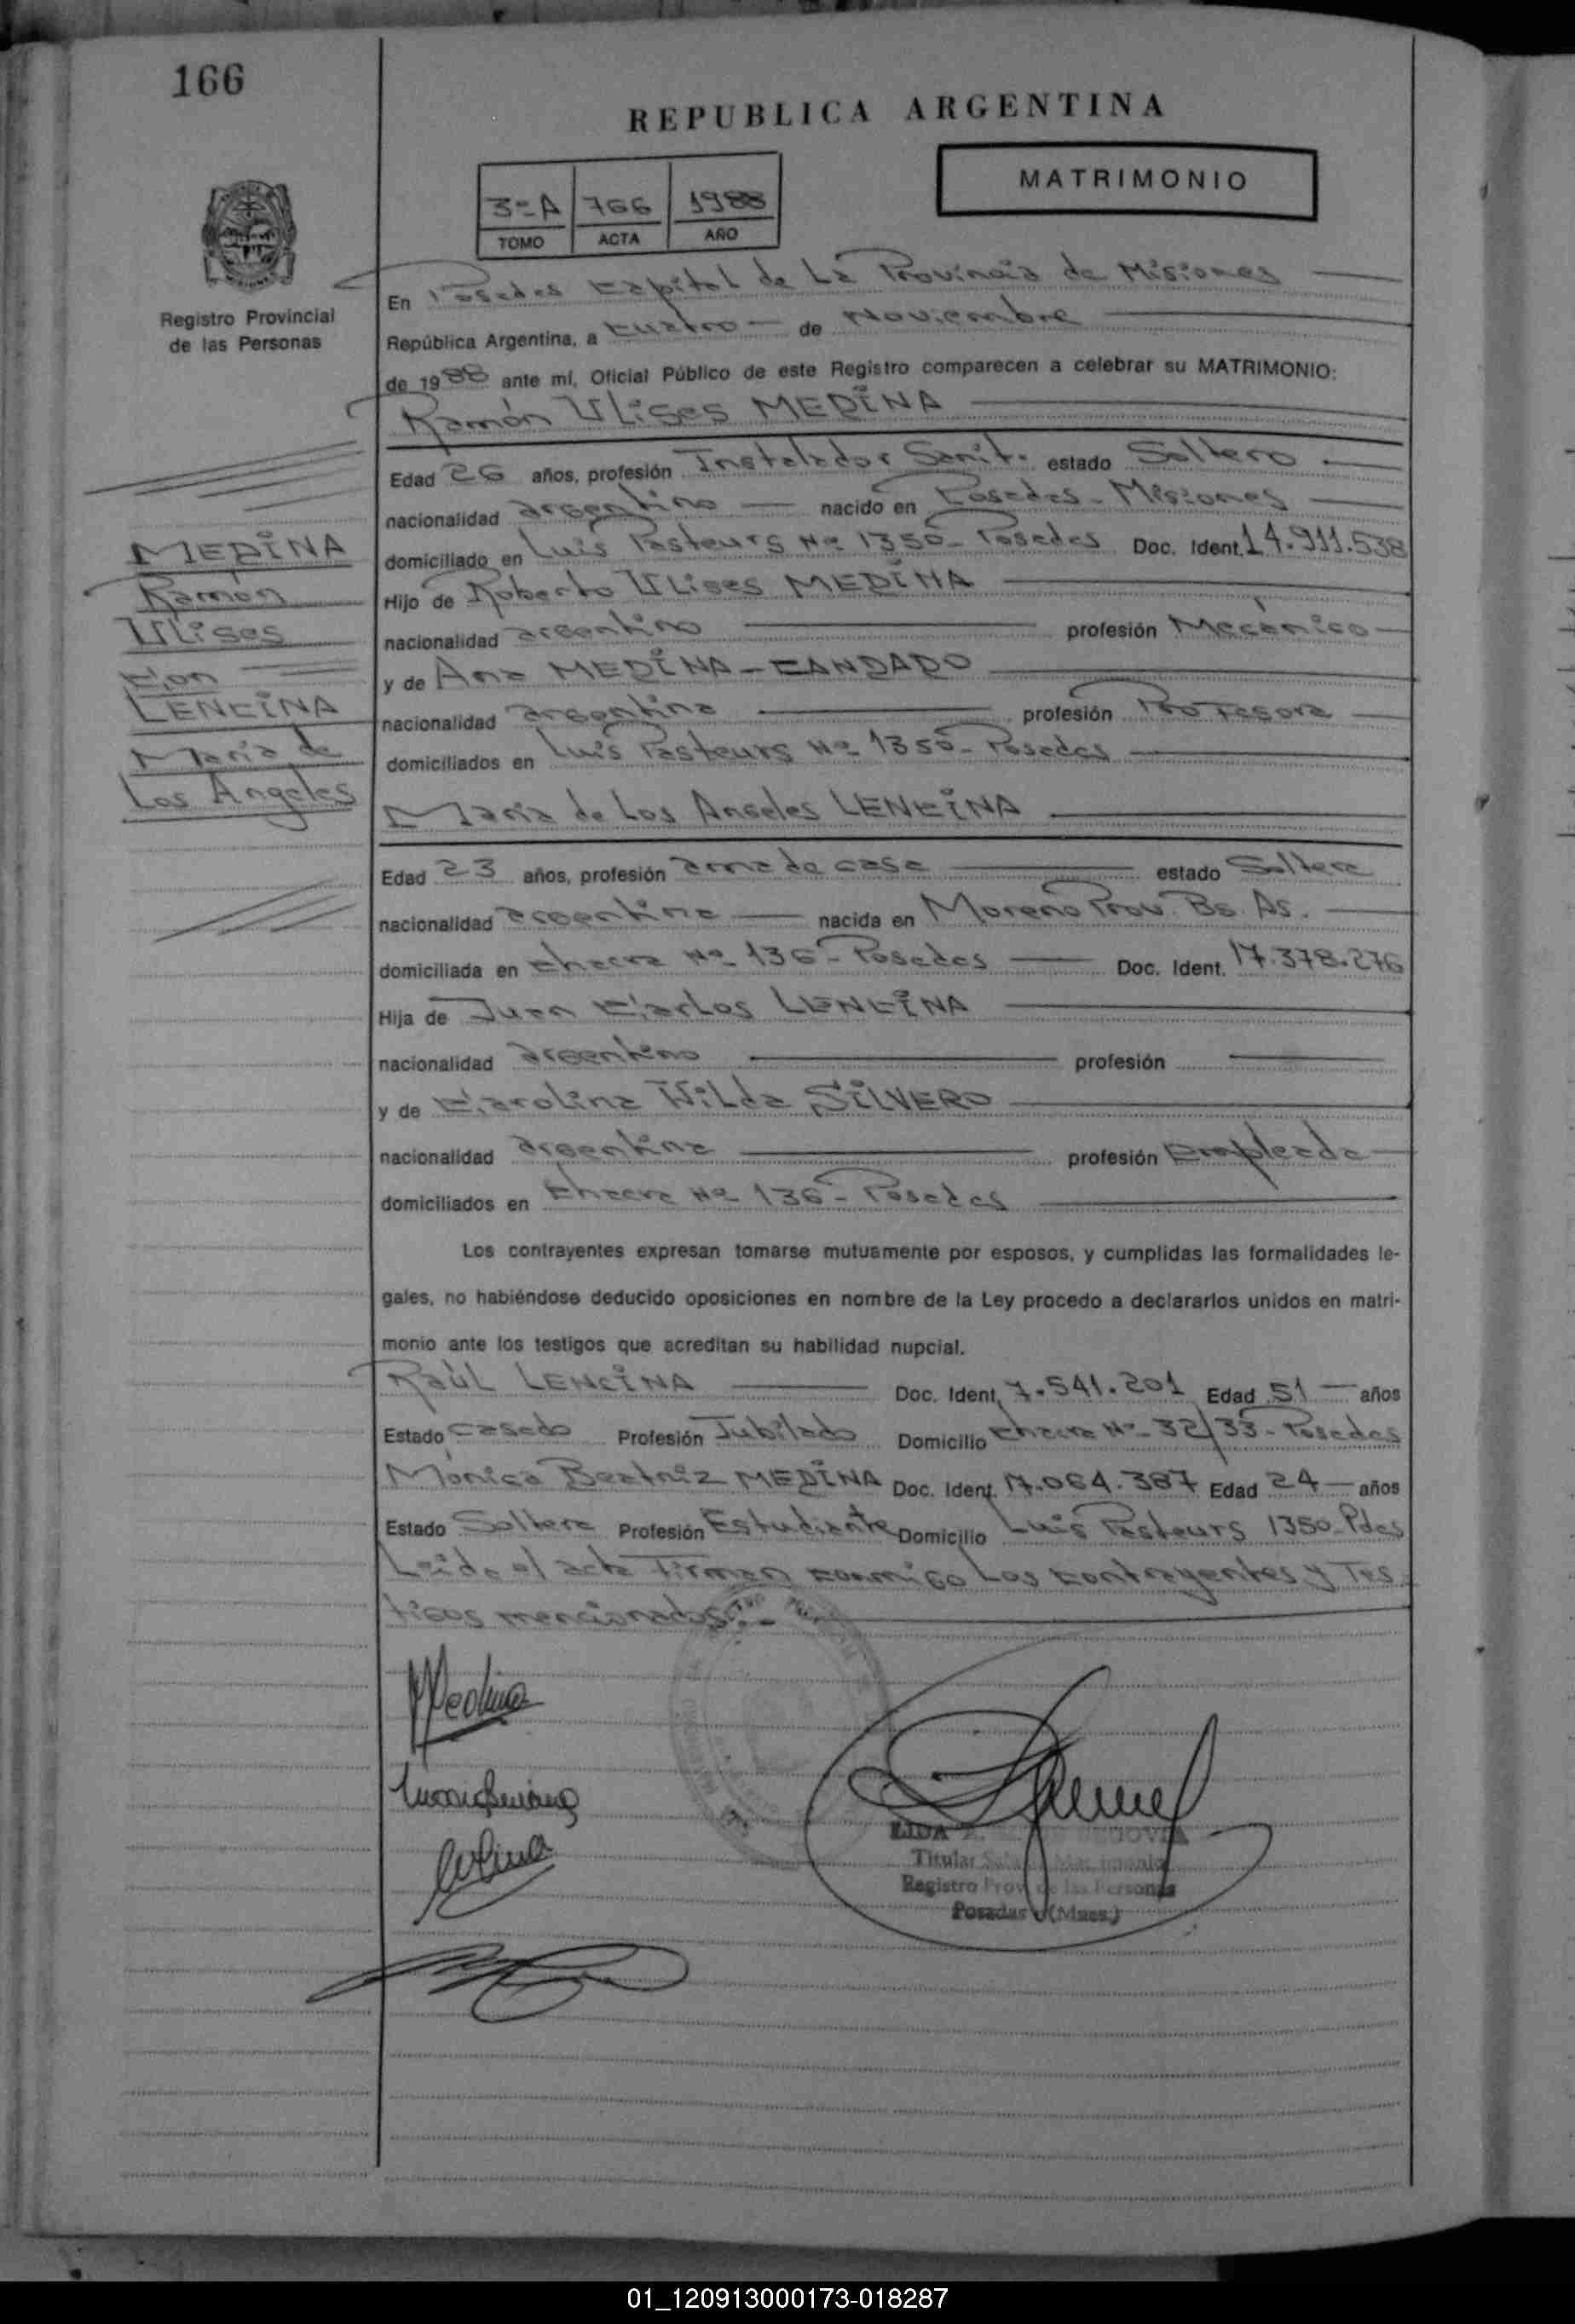 166
REPUBLICA ARGENTINA
MATRIMONIO
3º A 766 1988
TOMO ACTA AÑO
Registro Provincial
de las Personas
En Posadas Capital de La Provincia de Misiones
República Argentina, a cuatro de Noviembre
de 1988 ante mí, Oficial Público de este Registro comparecen a celebrar su MATRIMONIO:
Ramón Ulises MEDINA
Edad 26 años, profesión Instalador Sanit. estado Soltero
nacionalidad argentino nacido en Posadas - Misiones
domiciliado en Luis Pasteurs Nº 1350 - Posadas Doc. Ident. 14.911.538
Hijo de Roberto Ulises MEDINA
nacionalidad argentino profesión Mecánico
y de Ana MEDINA - CANDADO
nacionalidad argentina profesión Profesora
domiciliados en Luis Pasteurs Nº 1350 - Posadas
MEDINA
Ramón
Ulises
con
LENCINA
María de
Los Angeles
María de Los Angeles LENCINA
Edad 23 años, profesión ama de casa estado Soltera
nacionalidad argentina nacida en Moreno Prov. Bs. As.
domiciliada en chacra Nº 136 - Posadas Doc. Ident. 17.378.276
Hija de Juan Carlos LENCINA
nacionalidad argentino profesión
y de Carolina Wilda SILVERO
nacionalidad argentina profesión Empleada
domiciliados en chacra Nº 136 - Posadas
Los contrayentes expresan tomarse mutuamente por esposos, y cumplidas las formalidades le-
gales, no habiéndose deducido oposiciones en nombre de la Ley procedo a declararlos unidos en matri-
monio ante los testigos que acreditan su habilidad nupcial.
Raúl LENCINA Doc. Ident. 7.541.201 Edad 51 años
Estado casado Profesión Jubilado Domicilio chacra Nº 32/33 - Posadas
Mónica Beatriz MEDINA Doc. Ident. 17.064.387 Edad 24 años
Estado Soltera Profesión Estudiante Domicilio Luis Pasteurs 1350 - Pdas
Leida el acta firman conmigo Los contrayentes y Tes
tigos mencionados.-
Medina
Titular Matrimonio
Registro Prov. de las Personas
Posadas (Mnes.)
01_120913000173-018287